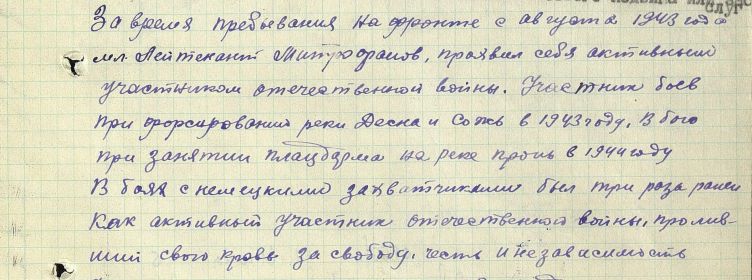 За время пребывания на фронте с августа 1943 года
мл Лейтенант Митрофанов, проявил себя активным
участником отечественной войны. Участник боев
при форсировании реки Десна и Сожь в 1943 году, в бою
при занятии плацдарма на реке Пронь в 1944 году
В боях с немецкими захватчиками был три раза ранен
Как активный участник отечественной войны, пролив-
ший свою кровь за свободу, честь и независимость